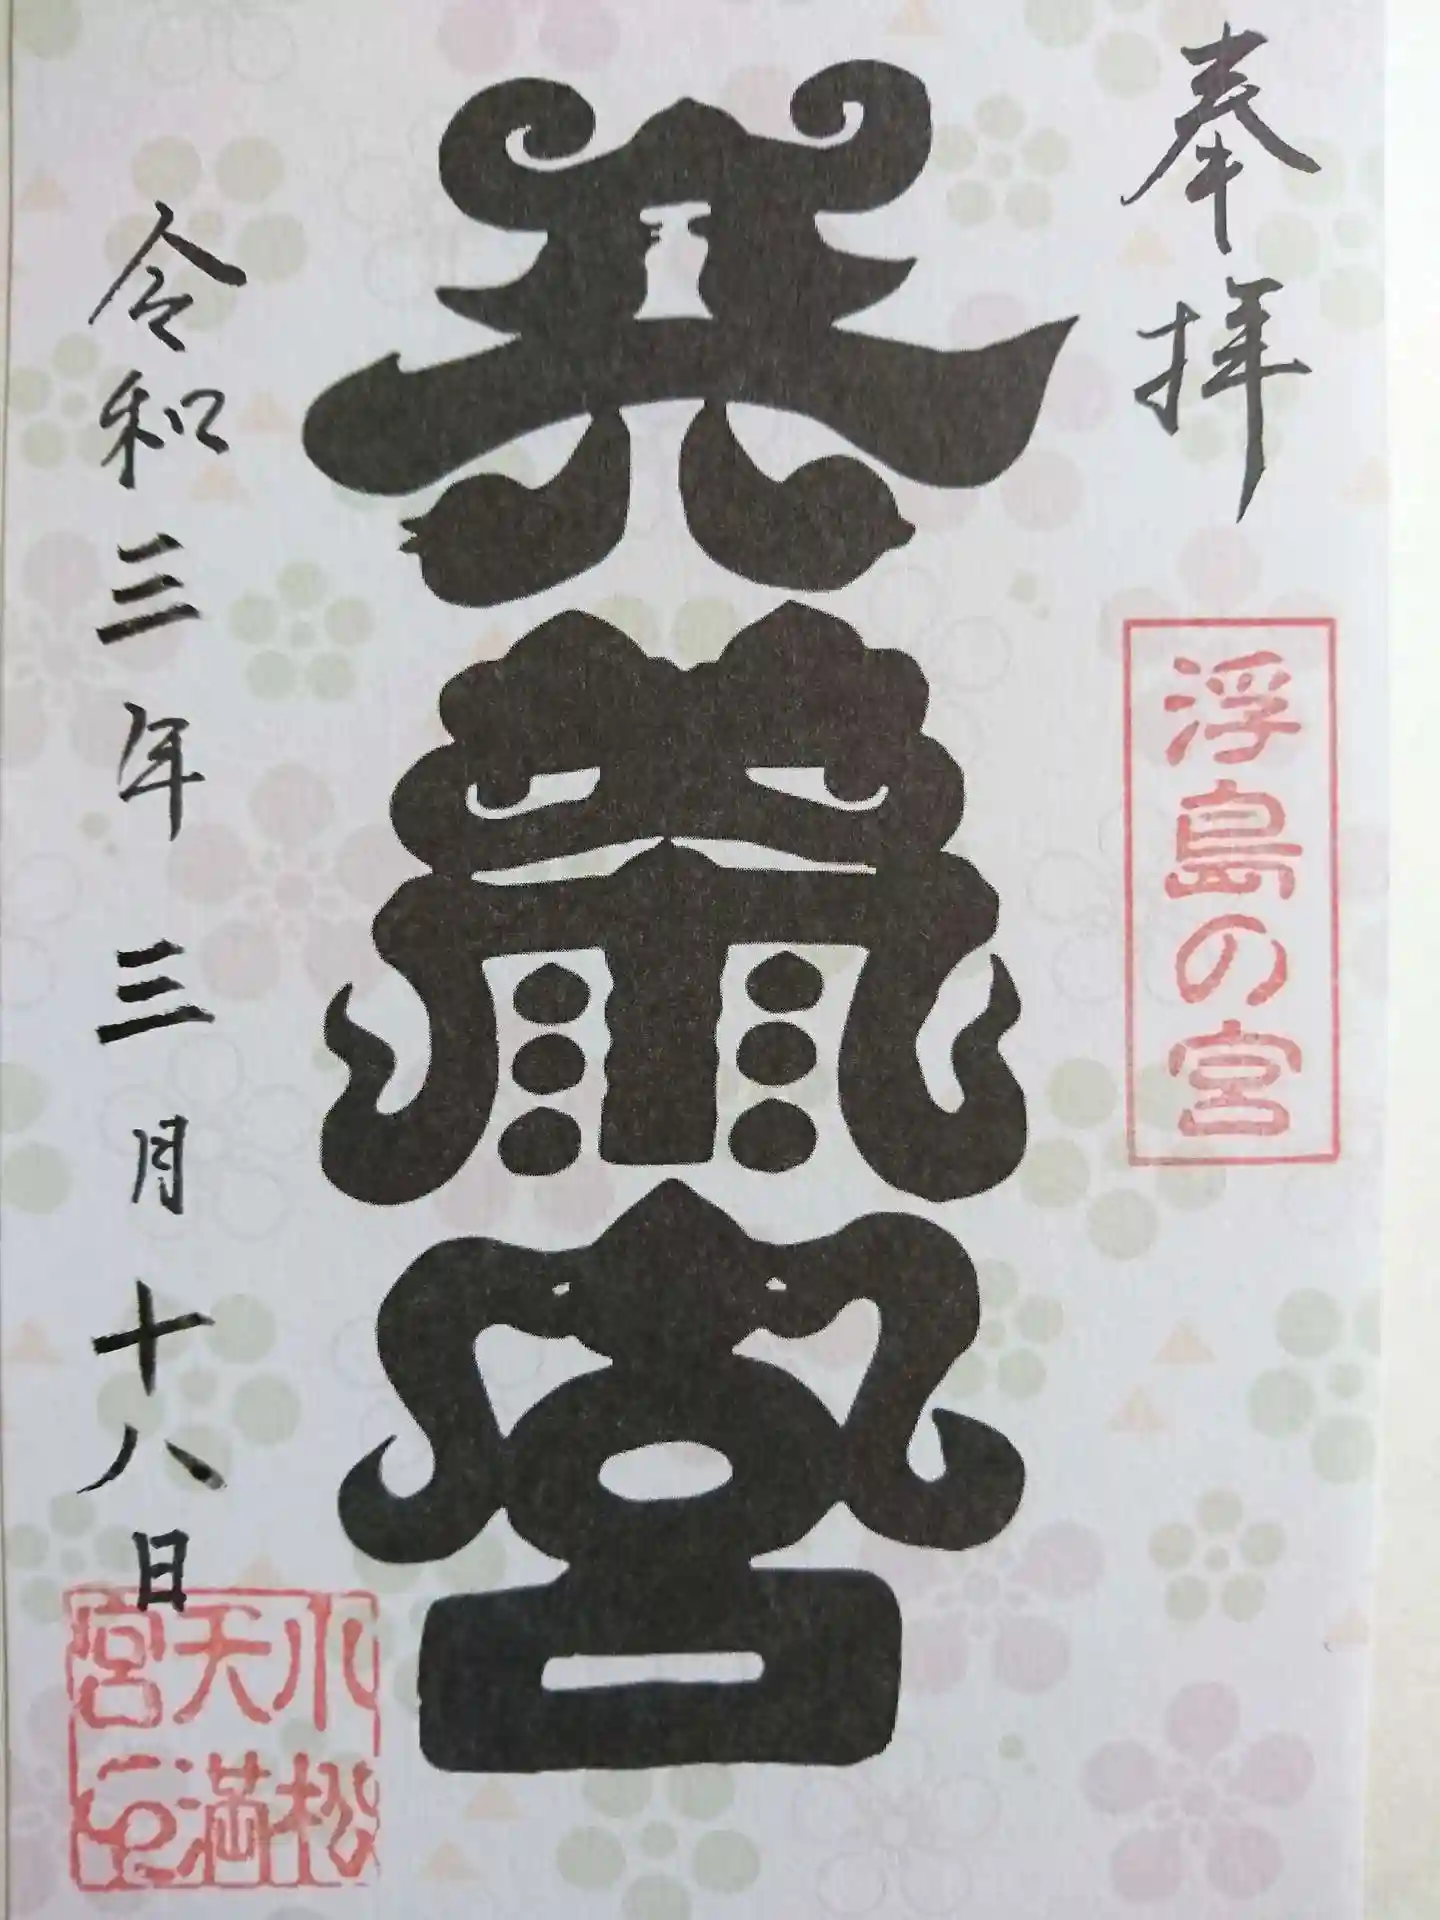 奉拝
浮島の宮
天満宮
令和三年三月十八日
小松
天満
宮印